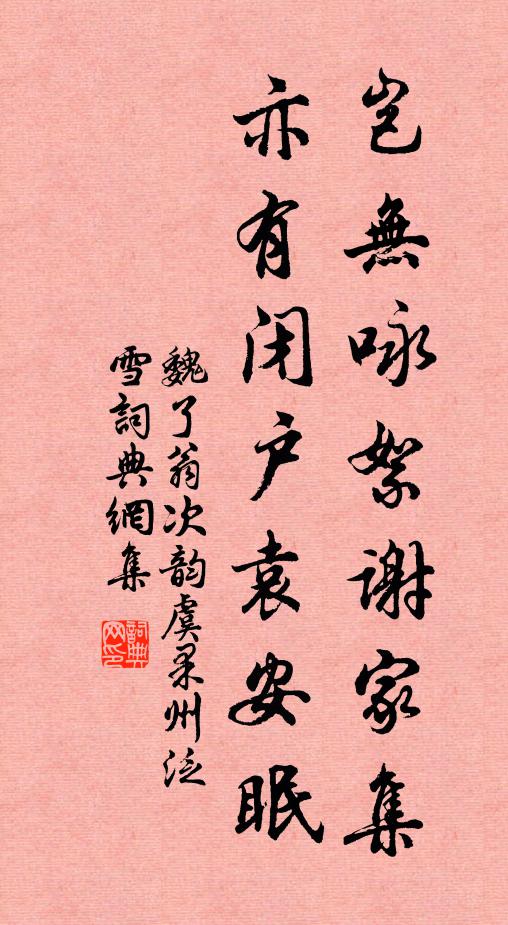 豈無咏絮謝家集
亦有闭户袁安眠
魏了翁次韵虞果州泛
雪詞典網集
詞典网印